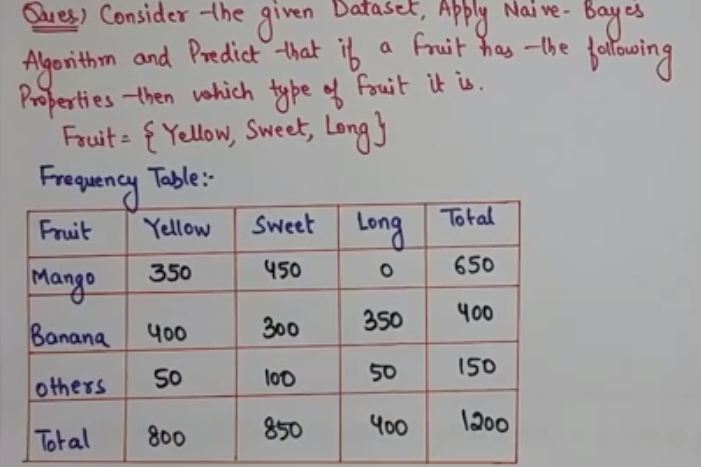 Ques.) Consider the given Dataset, Apply Naive-Bayes
Algorithm and Predict that if a fruit has the following
Properties then which type of fruit it is.
Fruit = { Yellow, Sweet, Long }
Frequency Table:-
Fruit Yellow Sweet Long Total
Mango 350 450 0 650
Banana 400 300 350 400
others 50 100 50 150
Total 800 850 400 1200